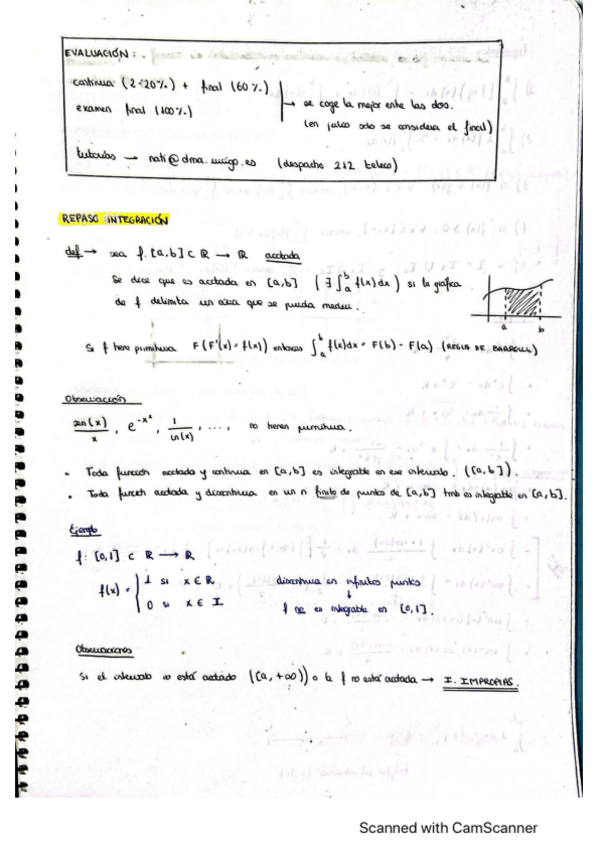 EVALUACIÓN:
continua (2×20%) + final (60%)
examen final (100%)
→ se coge la mejor entre las dos.
(en julio solo se considera el final)
tutorías → nati@dma.uvigo.es (despacho 212 teleco)
REPASO INTEGRACIÓN
def → sea f: [a,b] ⊂ ℝ → ℝ acotada
Se dice que es acotada en [a,b] (∃ ∫ₐᵇ f(x)dx) si la gráfica
de f delimita un área que se pueda medir.
a b
Si f tiene primitiva F (F'(x) = f(x)) entonces ∫ₐᵇ f(x)dx = F(b) - F(a). (REGLA DE BARROW)
Observación
sen(x)/x, e^-x², 1/ln(x), ..., no tienen primitiva.
• Toda función acotada y continua en [a,b] es integrable en ese intervalo. ([a,b]).
• Toda función acotada y discontinua en un nº finito de puntos de [a,b] tmb es integrable en [a,b].
Ejemplo
f: [0,1] ⊂ ℝ → ℝ
f(x) = { 1 si x ∈ ℝ. discontinua en infinitos puntos
0 si x ∈ I ↓
f no es integrable en [0,1].
Observaciones
Si el intervalo no está acotado ([a,+∞)) o la f no está acotada → I. IMPROPIAS.
Scanned with CamScanner